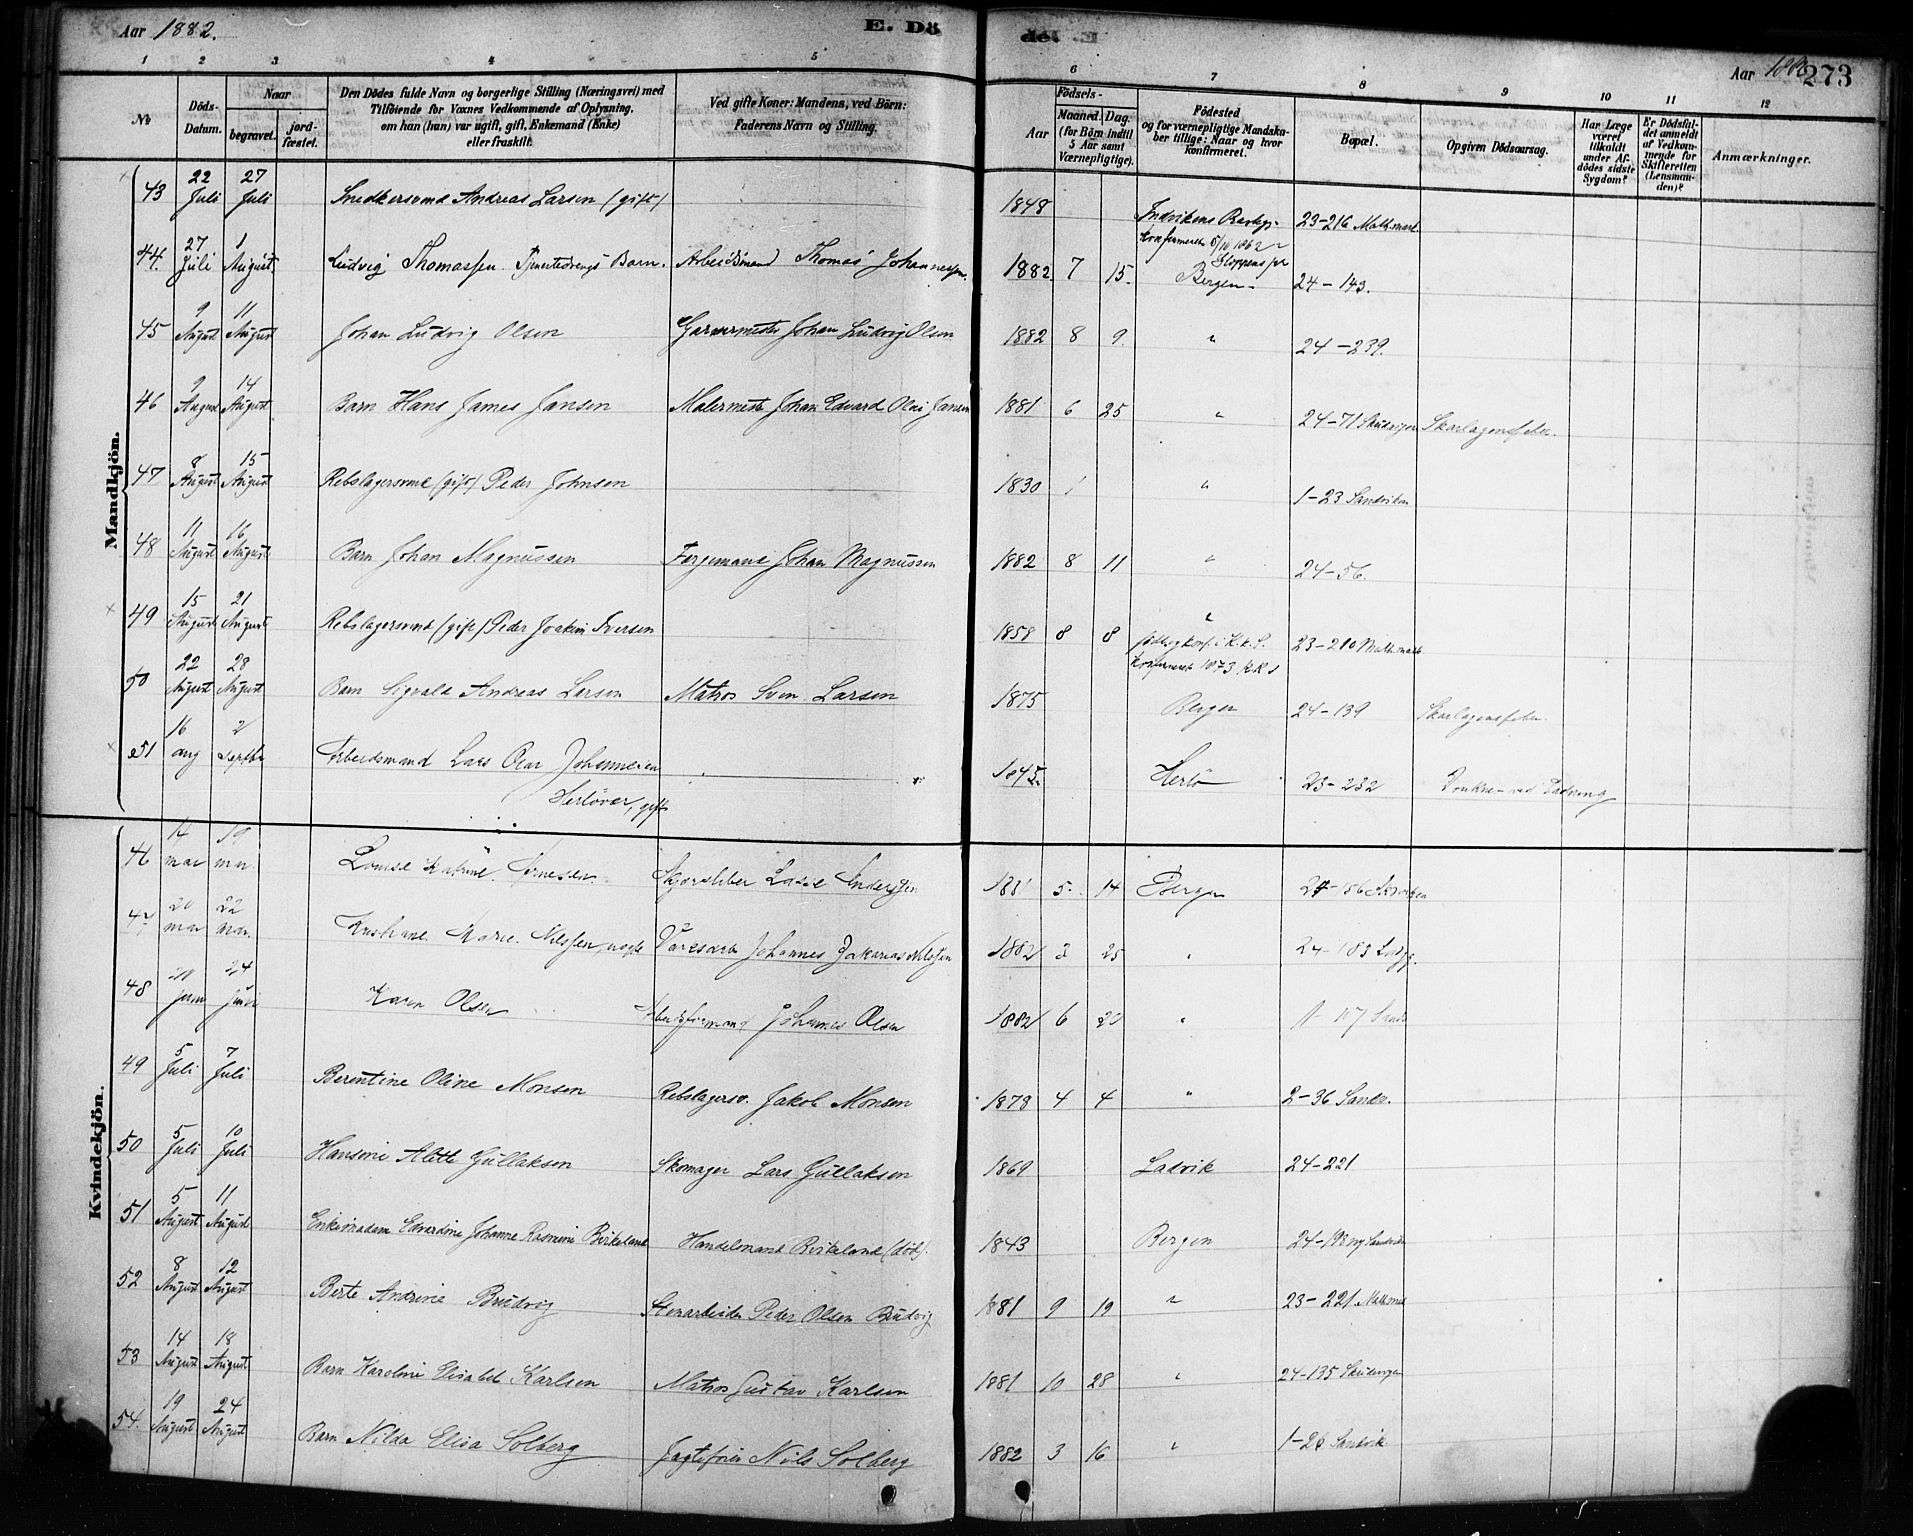 Aar 1882.
E. Dö
de. E
Aar 1882 273
1 2 3 4 5 6 7 8 9 10 11 12
No
Döds-Datum.
Naar
begravet.
jord-fæstet.
Den Dödes fulde Navn og borgerlige Stilling (Næringsvei) med
Tilföiende for Voxnes Vedkommende af Oplysning,
om han (hun) var ugift, gift, Enkemand (Enke)
eller fraskilt.
Ved gifte Koner: Mandens, ved Börn:
Faderens Navn og Stilling.
Födsels-
Aar
Maaned. Dag.
(for Börn indtil
5 Aar samt
Værnepligtige).
Födested
og for værnepligtige Mandska-
ber tillige: Naar og hvor
konfirmeret.
Bopæl.
Opgiven Dödsaarsag.
Har Læge
været
tilkaldt
under Af-
dödes sidste
Sygdom?
Er Dödsfal-
det anmeldt
af Vedkom-
mende for
Skifteretten
(Lensman-
den)?
Anmærkninger.
Mandkjön.
43 22 Juli 27 Juli Snedkersvend Andreas Larsen (gift) 1848 Indvikens 23-216
Konfirmeret 5/10 1862
44. 27 Juli 1 August Ludvig Thomassen Barn. Arbeidsmand Thomas Johannessen. 1882 7 15. Bergen. 24-143.
45 9 August 11 August Johan Ludvig Olsen Garvermester Johan Ludvig Olsen 1882 8 9. " 24-239.
46 9 August 14 August Barn Hans James Jansen Malermester Johan Edvard Olai Jansen 1881 6 25 " 24-71 Skarlagensfeber.
47 8 August 15 August Rebslagersvend (gift) Peder Johnsen 1830 " 1-23 Sandviken
48 11 August 16 August Barn Johan Magnussen Færgemand Johan Magnussen 1882 8 11 " 24-56.
49 15 August 21 August Rebslagersvend (gift) Peder Joakim Iversen 1858 8 8 " 23-210
Konfirmeret 1873
50 22 August 28 August Barn Sigvald Andreas Larsen Matros Sven Larsen 1875 Bergen 24-139 Skarlagensfeber
51 16 aug 2 Septbr Arbeidsmand Lars Olai Johannesen 1845 Herlö 23-232
Herlöver, gift
Kvindekjön.
46 14 mar 19 mar. Louise Katrine 1881 5. 14 Bergen
47 20 mar 22 mar. Marie Nilssen, Johannes Zakarias Nilssen 1882 3 25 " 24-183
48 20 juni 24 juni Karen Olsen Johannes Olsen 1882 6 20 " 107
49 5 Juli 7 Juli Berentine Oline Monsen Rebslagersv. Jakob Monsen 1878 4 4 " 2-36 Sandv.
50 5 Juli 10 Juli Hansine Alette Gullaksen Skomager Lars Gullaksen 1869 Ladvik 24-221
51 5 August 11 August Enkemadam Edvardine Johanne Rasmine Birkeland Handelsmand Birkeland (död). 1843 Bergen
52 8 August 12 August Berte Andrine Brudvig Stenarbeider Peder Olsen Brudvig 1881 9 19 " 23-221
53 14 August 18 August Barn Karoline Elisabet Karlsen Matros Gustav Karlsen 1881 10 28 " 24-135
54. 19 August 24 August Barn Nilda Elisa Solberg Jagtefører Nils Solberg 1882 3 16 " 1-26 Sandvik